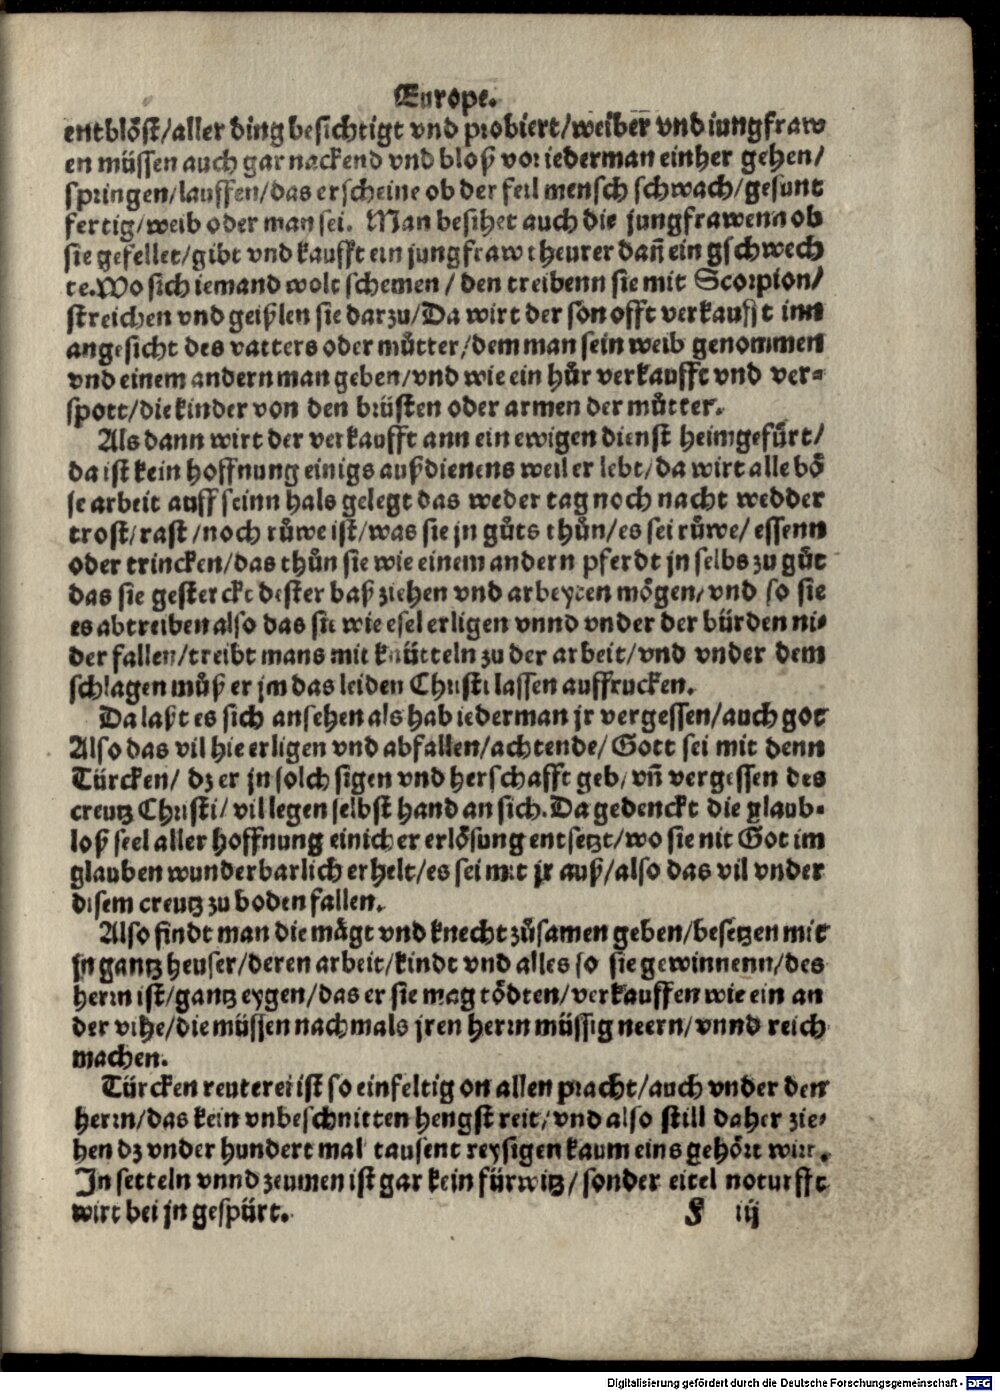 Europe.
entblöst/aller ding besichtigt vnd probiert/weiber vnd iungfraw
en müssen auch gar nackend vnd bloß vor iederman einher gehen/
springen/lauffen/das erscheine ob der feil mensch schwach/gesunt
fertig/weib oder man sei. Man besihet auch die jungfrawenn ob
sie gefellet/gibt vnd kaufft ein jungfraw theurer dañ ein gschwech
te. Wo sich iemand wolt schemen / den treibenn sie mit Scorpion/
streichen vnd geißlen sie darzu/Da wirt der son offt verkaufft inn
angesicht des vatters oder mütter/dem man sein weib genommen
vnd einem andern man geben/vnd wie ein hůr verkaufft vnd ver-
spott/die kinder von den brüsten oder armen der mütter.
Als dann wirt der verkaufft ann ein ewigen dienst heimgefürt/
da ist kein hoffnung einigs außdienens weil er lebt/da wirt alle bö
se arbeit auff seinn hals gelegt das weder tag noch nacht wedder
trost/rast/noch růwe ist/was sie jn gůts thůn/es sei růwe/essenn
oder trincken/das thůn sie wie einem andern pferdt jn selbs zu gůt
das sie gesterckt dester baß ziehen vnd arbeyten mögen/vnd so sie
es abtreiben also das sie wie esel erligen vnnd vnder der bürden ni-
der fallen/treibt mans mit knütteln zu der arbeit/vnd vnder dem
schlagen můß er jm das leiden Christi lassen auffrucken.
Da laßt es sich ansehen als hab iederman jr vergessen/auch got
Also das vil hie erligen vnd abfallen/achtende/Gott sei mit denn
Türcken/ dz er jn solch sigen vnd herschafft geb/vñ vergessen des
creutz Christi/vil legen selbst hand an sich. Da gedenckt die glaub-
loß seel aller hoffnung einicher erlösung entsetzt/wo sie nit Got im
glauben wunderbarlich erhelt/es sei mit jr auß/also das vil vnder
disem creutz zu boden fallen.
Also findt man die mägt vnd knecht zůsamen geben/besetzen mit
jn gantz heuser/deren arbeit/kindt vnd alles so sie gewinnenn/des
herrn ist/gantz eygen/das er sie mag tödten/verkauffen wie ein an
der vihe/die müssen nachmals jren herrn müssig neern/vnnd reich
machen.
Türcken reuterei ist so einfeltig on allen pracht/auch vnder den
herrn/das kein vnbeschnitten hengst reit/vnd also still daher zie-
hen dz vnder hundert mal tausent reysigen kaum eins gehört wirt.
In setteln vnnd zeumen ist gar kein fürwitz/sonder eitel noturfft
wirt bei jn gespürt. F iij
Digitalisierung gefördert durch die Deutsche Forschungsgemeinschaft - DFG